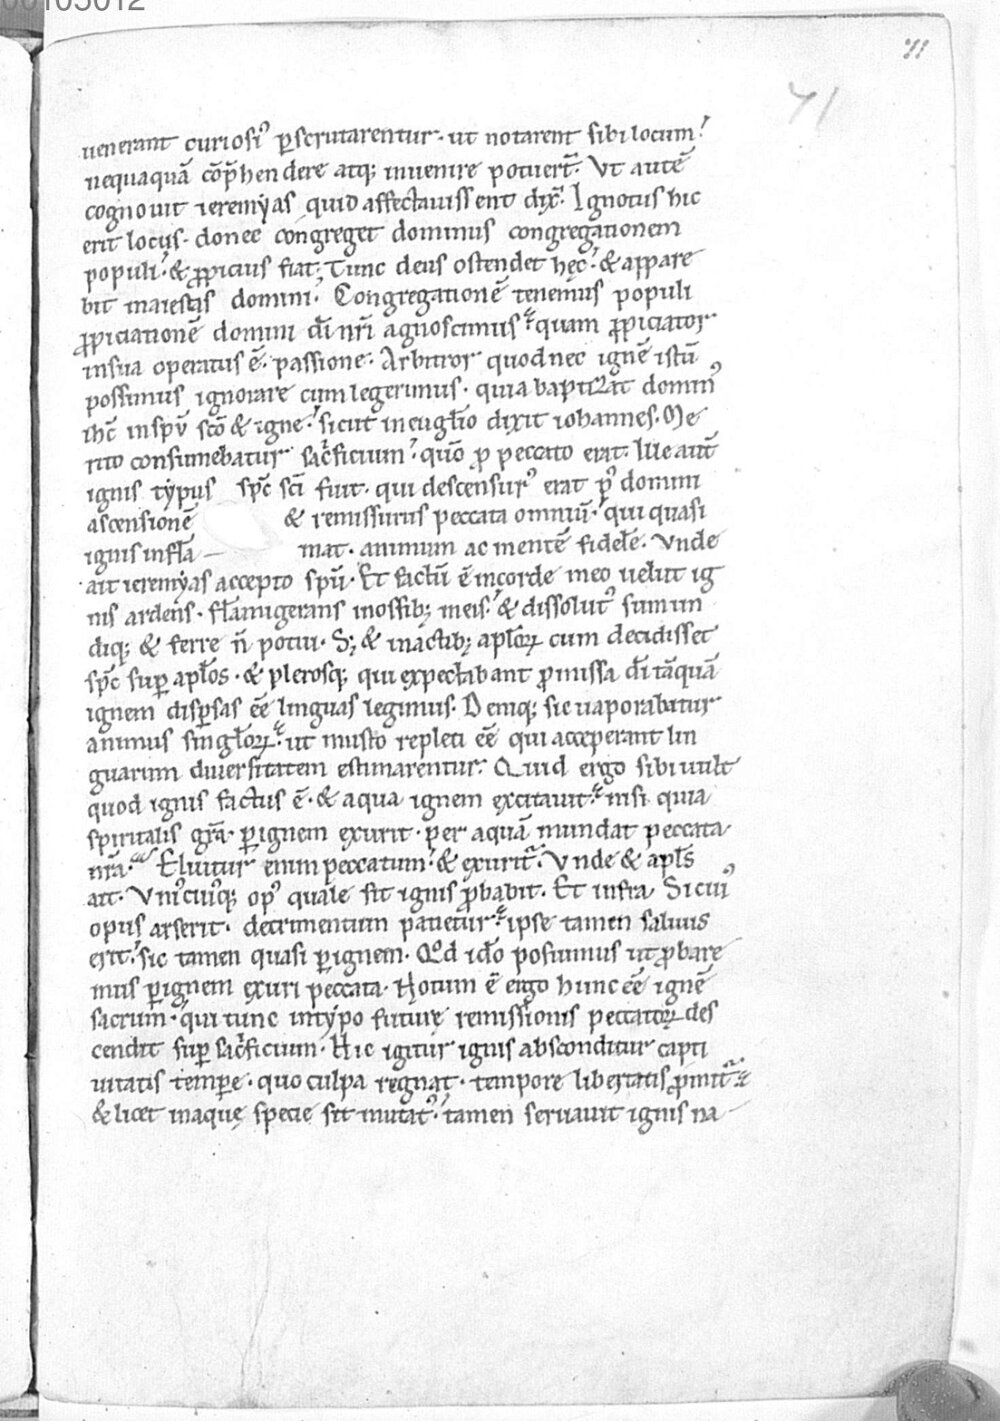 00105012
71
71
uenerant curiosi᾽ ꝑscrutarentur· ut notarent sibi locum!
nequaquā cōp̄hendere atq; inuenire potuerт̄. Vt autē
cognouit ieremẏas quid affectauissent dix̄. Ignotus hic
erit locus· donec congreget dominus congregationem
populi· & ꝓpicius fiat; Tunc deus ostendet hęc· & appare
bit maiestas domini· Congregationē tenemus populi
ꝓpiciationē domini dn̄i nr̄i agnoscimus· quam ꝓpiciator
insua operatus ē· passione. Arbitror quod nec ignē istū
possimus ignorare cum legerimus· quia baptizat domin᾽
ih̄c in spū sc̄o & igne· sicut in eugl̄io dixit iohannes. Me
rito consumebatur sacͥficium· quō ꝓ peccato erat. Ille aut̄
ignis tẏpus sp̄c sc̄i fuit· qui descensur᾽ erat p᾽ domini
ascensionē & remissurus peccata omniū· qui quasi
ignis inflā— mat· animum ac mentē fidele᷒. Vnde
ait ieremẏas accepto spū· Et factū ē in corde meo uelut ig
nis ardens· flāmigerans in ossib; meis· & dissolut᾽ sum un
diq; & ferre n̄ potui. S; & in actib; apl̄oꝝ cum decidisset
sp̄c sup̄ apl̄os· & plerosq; qui expectabant ꝓmissa dī tāquā
ignem disꝑsas ēē linguas legimus. Deniq; sic uaporabatur
animus singl̄oꝝ· ut musto repleti ēē qui acceperant lin
guarum diuersitatem estimarentur. Quid ergo sibi uult
quod ignis factus ē· & aqua ignem excitauit· nisi quia
spiritalis gr̄a· ꝑ ignem exurit· per aquā mundat peccata
nr̄a. Eluitur enim peccatum· & exurit᷒. Vnde & apl̄s
ait. Vnicuiq; op᾽ quale sit ignis ꝓbabit. Et infra Si cui᾽
opus arserit· detrimentum patietur· ipse tamen saluus
erit· sic tamen quasi ꝑ ignem. Qd id̄o posuimus ut ꝓbare
mus ꝑ ignem exuri peccata. Notum ē ergo hunc ēē ignē
sacrum· qui tunc in tẏpo futurę remissionis peccatoꝝ des
cendit sup̄ sacͥficium. Hic igitur ignis absconditur capti
uitatis tempe᷒· quo culpa regnat· tempore libertatis ꝓmit᷒
& licet in aquę specie sit mutat᾽· tamen seruauit ignis na